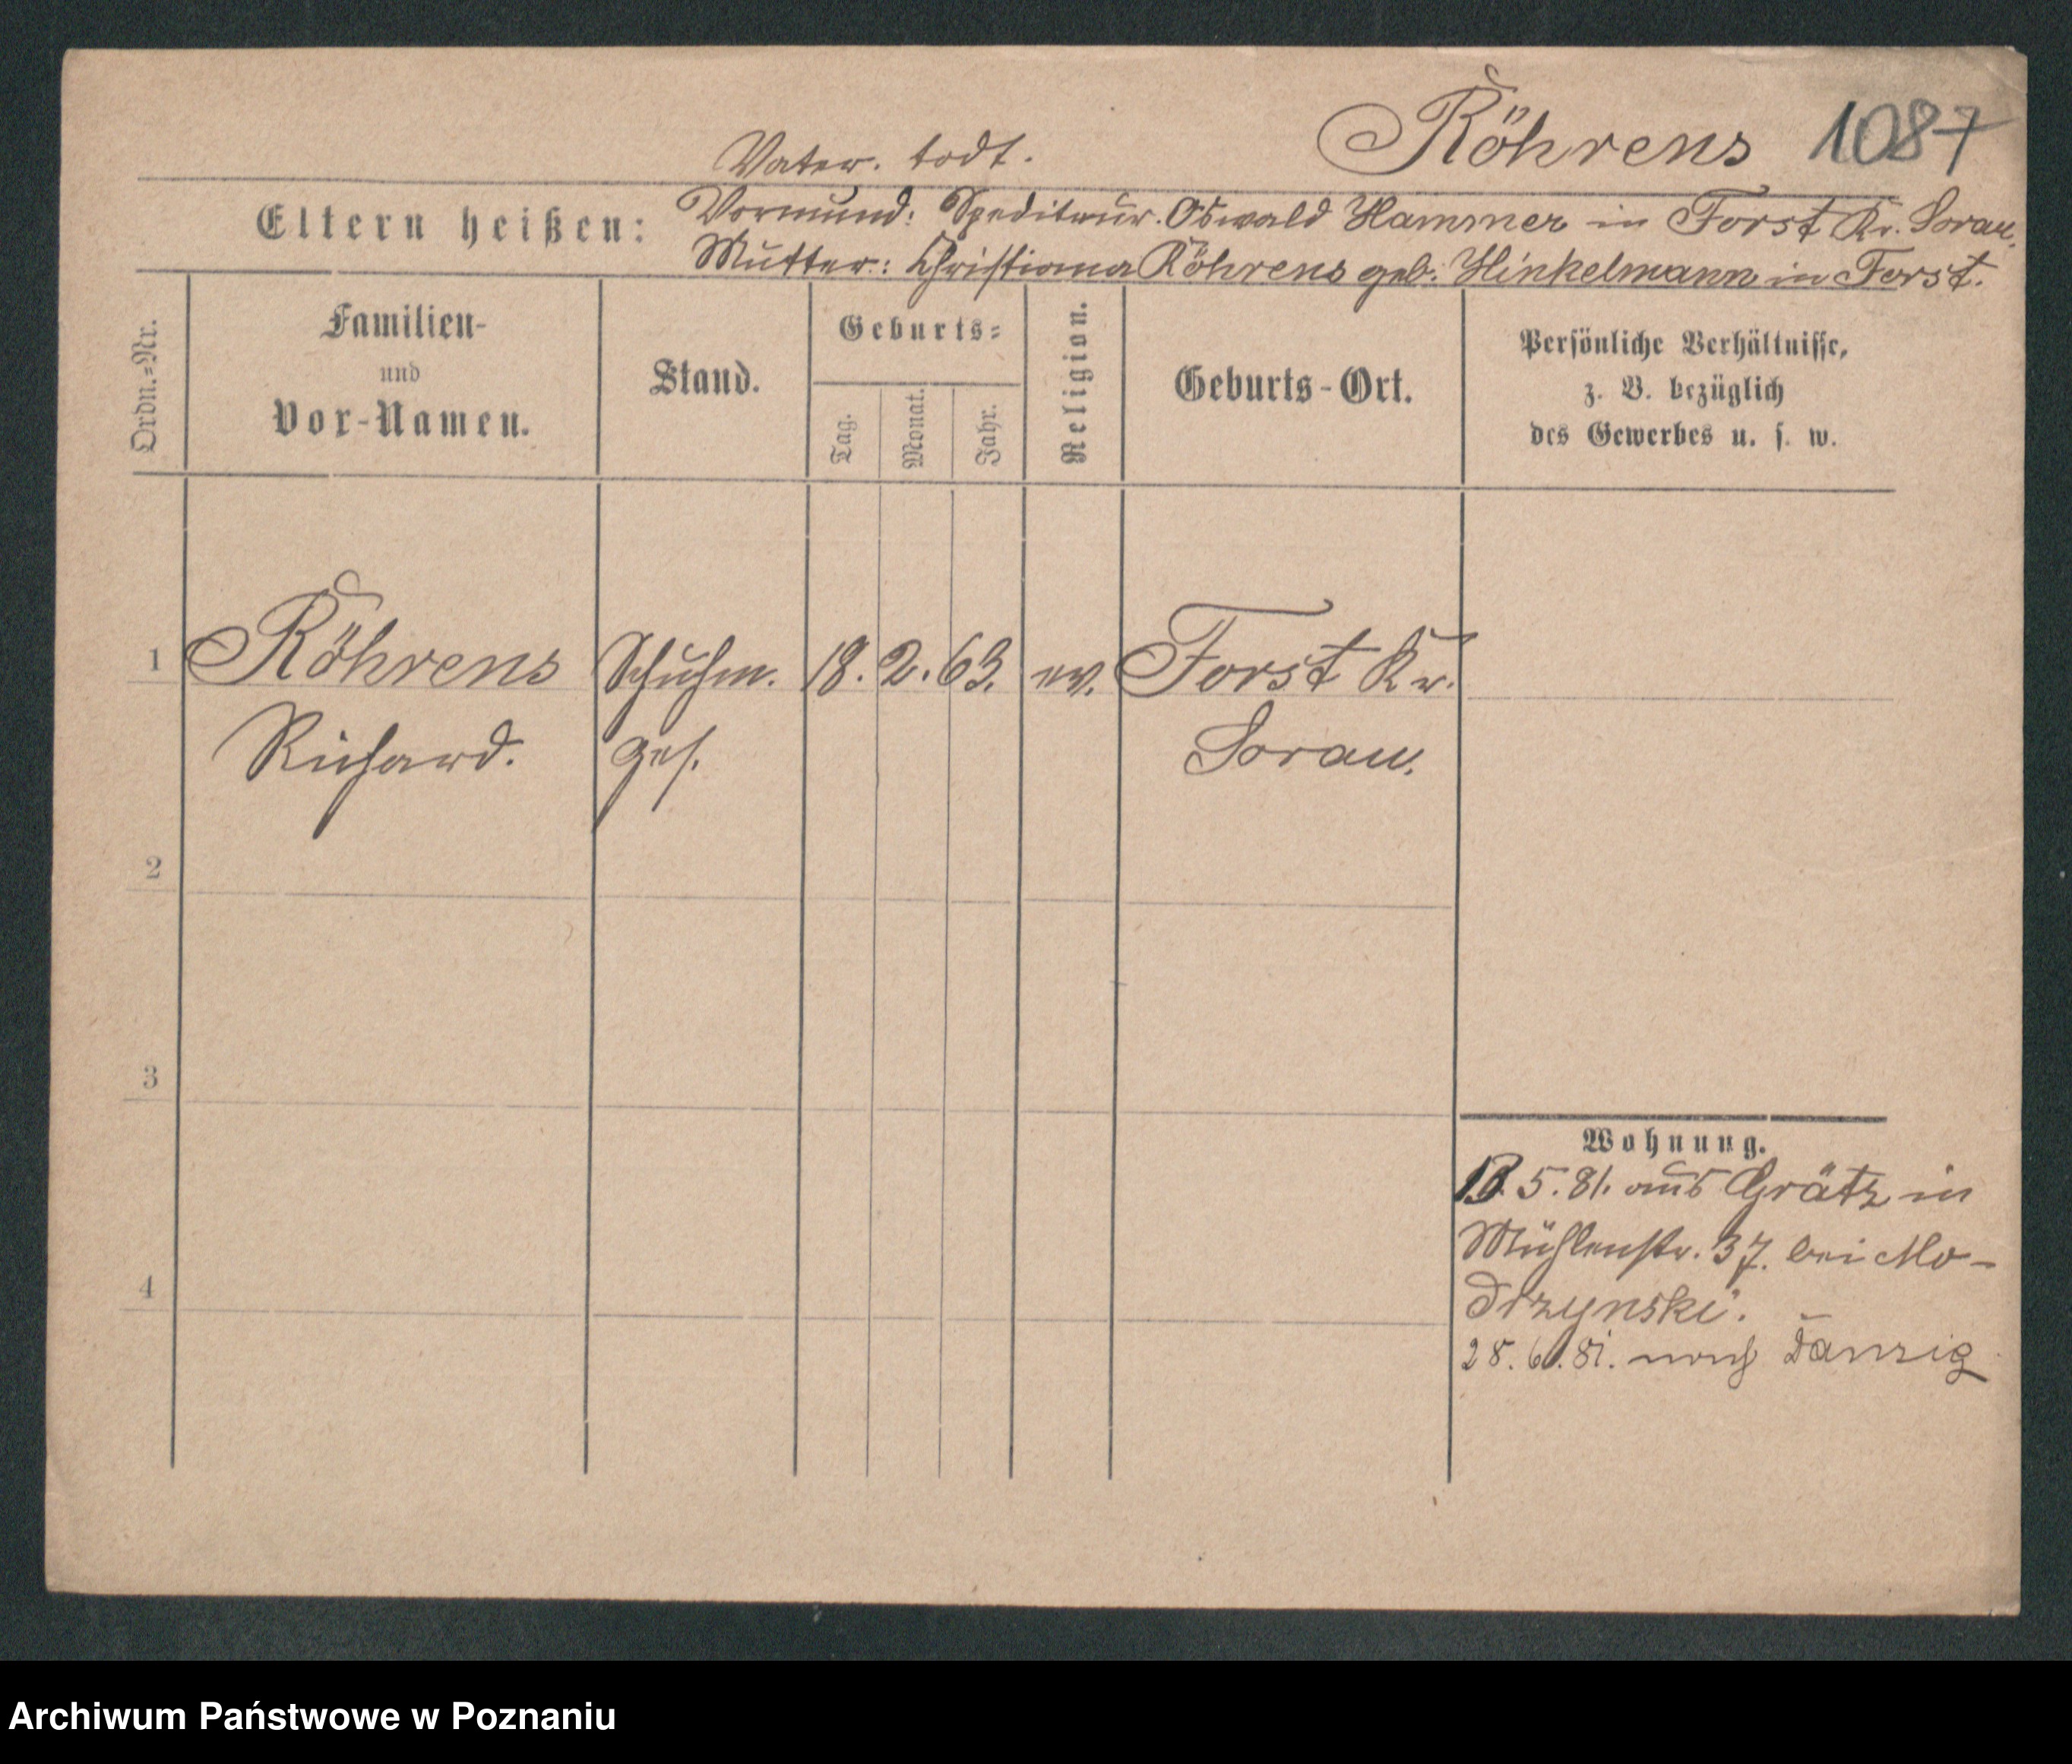 Röhrens 1087
Vater. todt.
Eltern heißen: Vormund: Spediteur. Oswald Hammer in Forst Kr. Sorau.
Mutter: Christiana Röhrens geb. Hinkelmann in Forst.
Ordn.=Nr.
Familien-
und
Vor-Namen.
Stand.
Geburts=
Tag.
Monat.
Jahr.
Religion.
Geburts-Ort.
Persönliche Verhältnisse,
z. B. bezüglich
des Gewerbes u. s. w.
1 Röhrens Schuhm. 18. 2. 63. ev. Forst Kr.
Richard. ges. Sorau.
2
3
4
Wohnung.
5. 81. aus Grätz in
Mühlenstr. 37. bei Mo-
drzynski.
28. 6. 81. nach Danzig
Archiwum Państwowe w Poznaniu